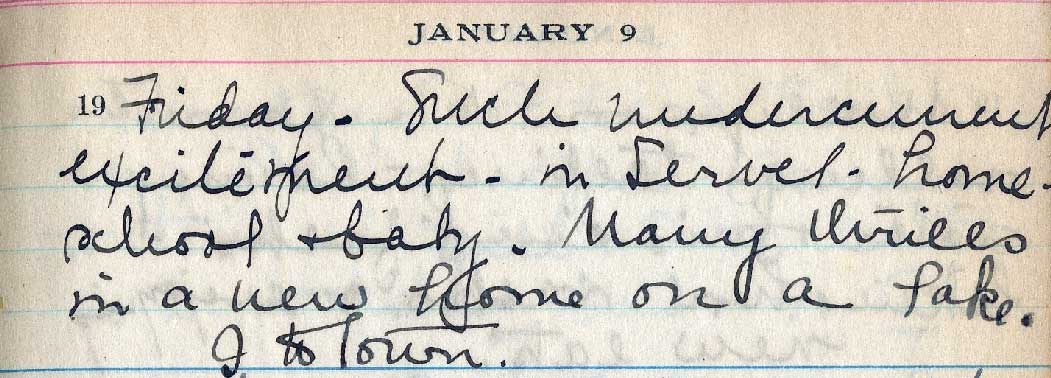 JANUARY 9
19 Friday. Such undercurrent
excitement - in Servel - home -
school + baby. Many thrills
in a new home on a lake.
I to town.